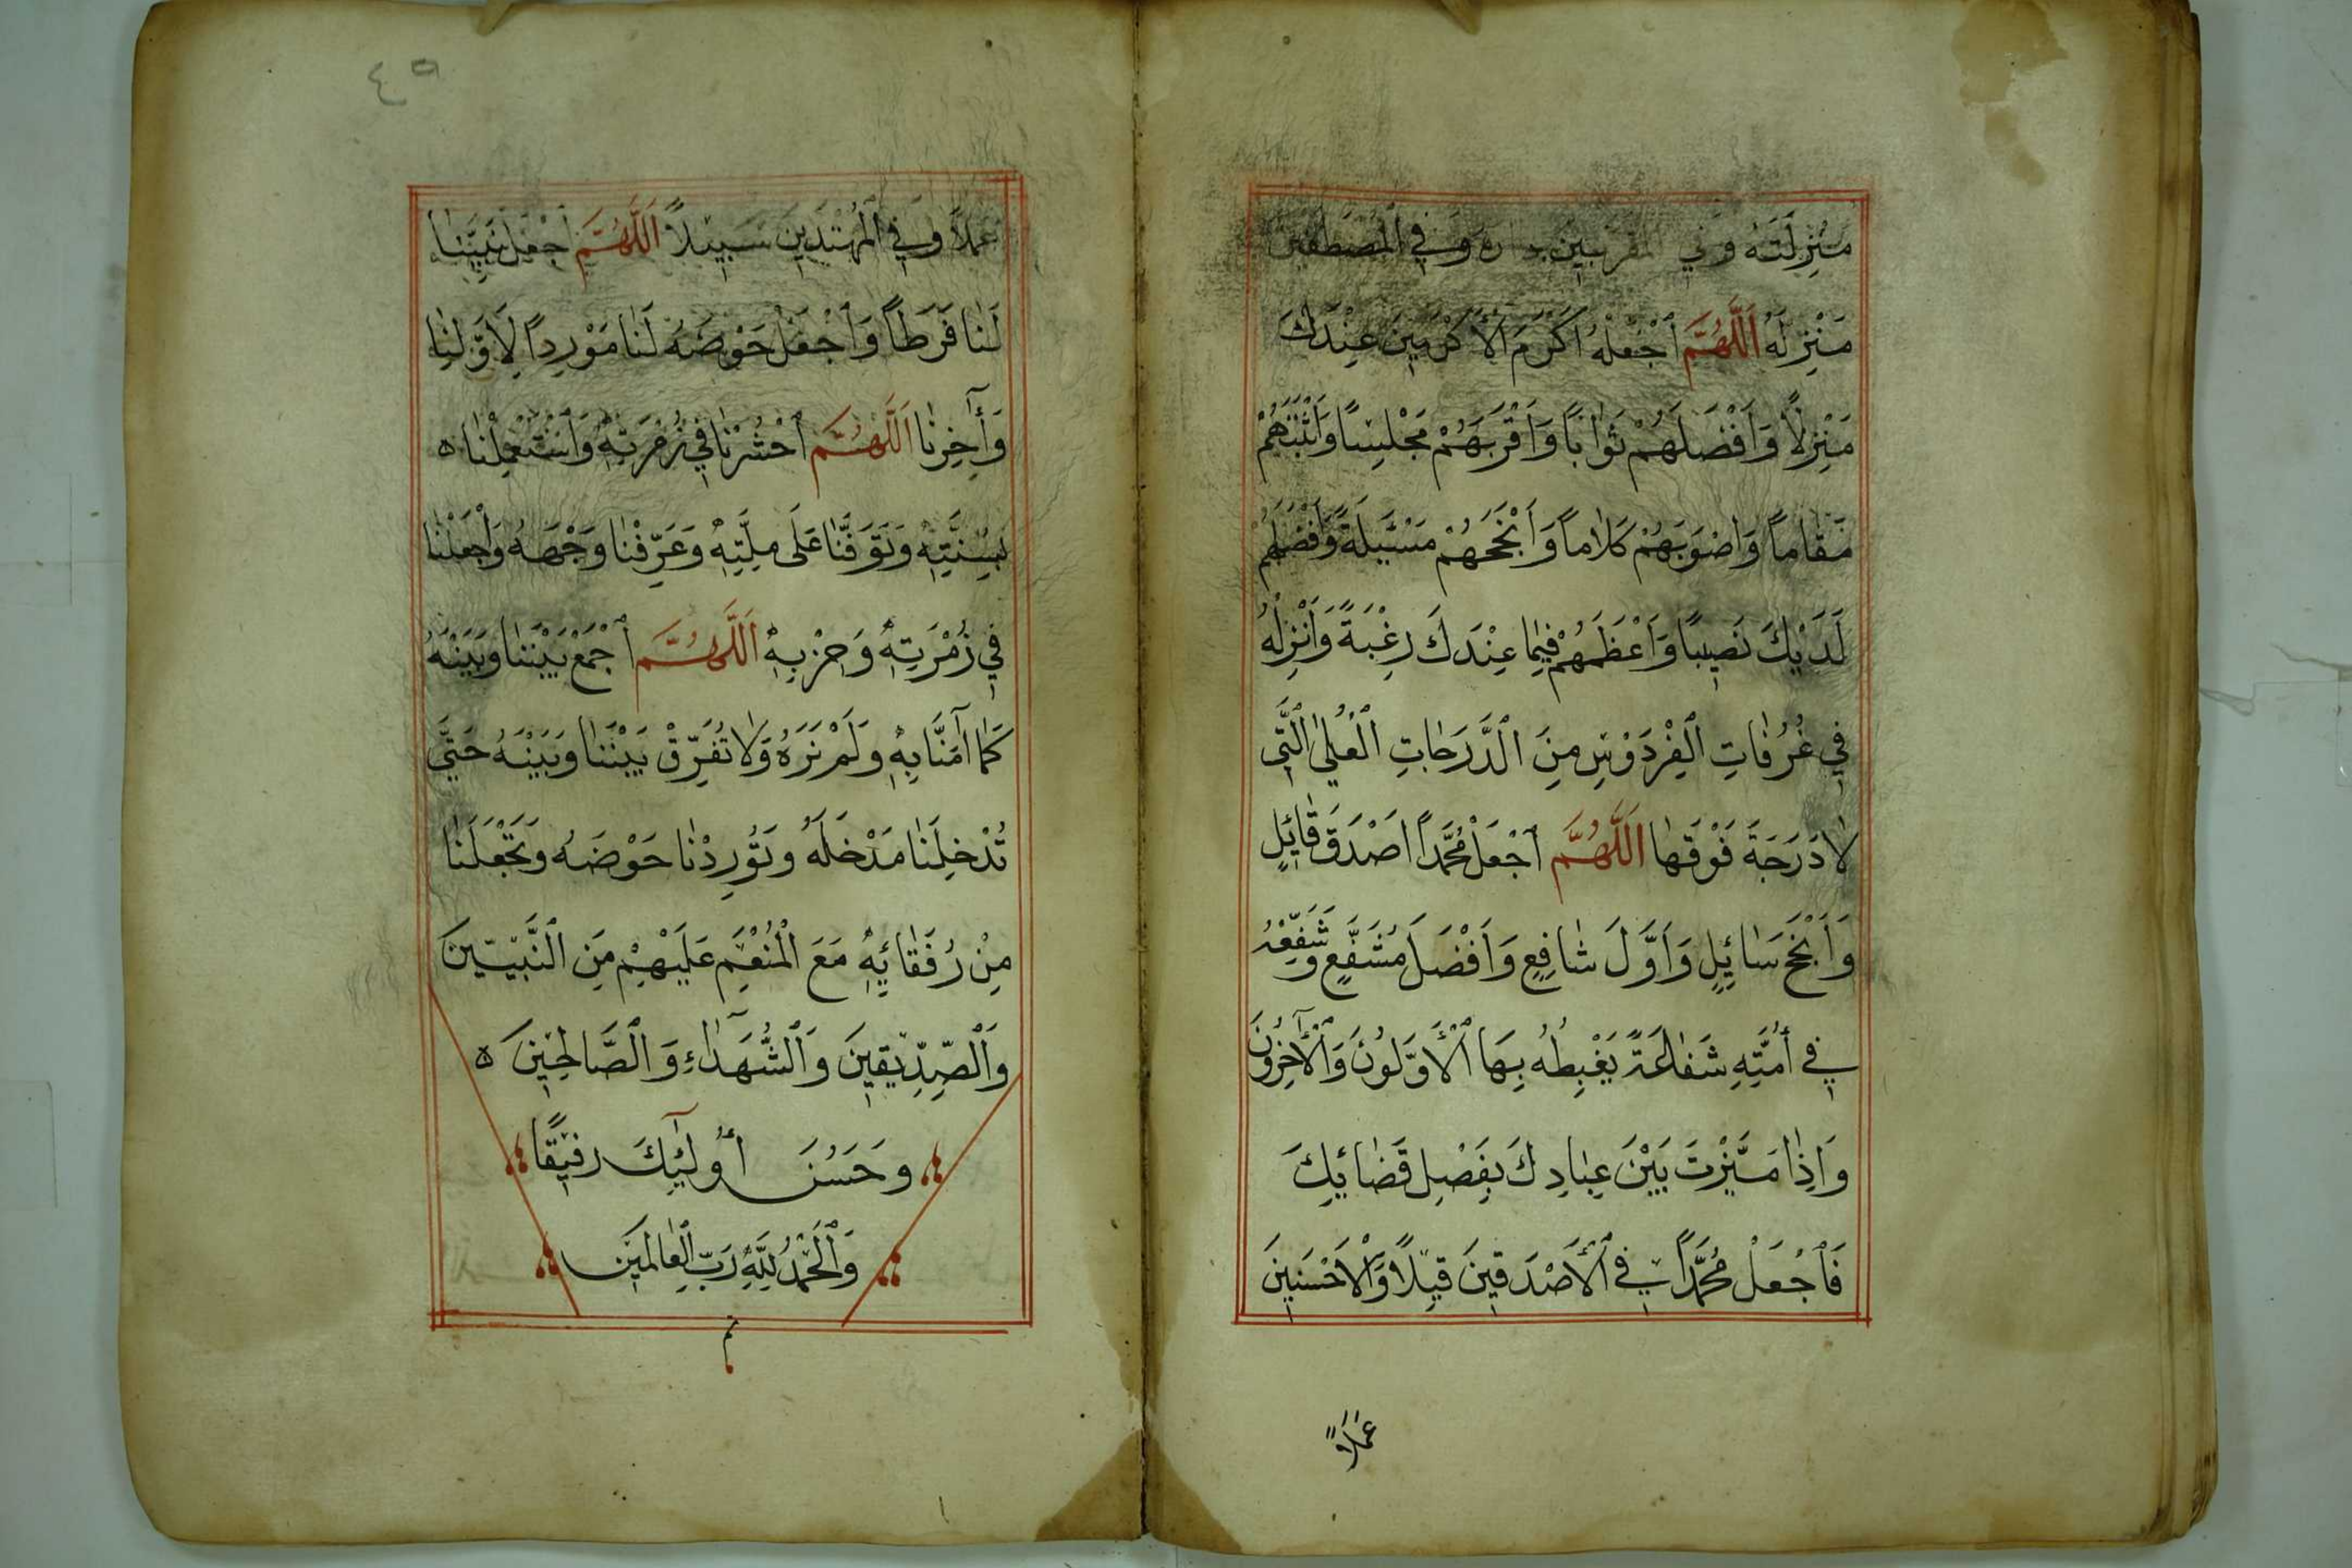 مَنْزِلَتَهُ وَفِي المُقَرَّبِينَ دَارَهُ وَفِي الْمُصْطَفَيْنَ
مَنْزِلَهُ اَللَّهُمَّ اجْعَلْهُ اَكْرَمَ الْأَكْرَمِينَ عِنْدَكَ
مَنْزِلاً وَاَفْضَلَهُمْ ثَوَاباً وَاَقْرَبَهُمْ مَجْلِساً وَاَثْبَتَهُمْ
مَقَاماً وَاَصْوَبَهُمْ كَلَاماً وَاَنْجَحَهُمْ مَسْئَلَةً وَاَفْضَلَهُمْ
لَدَيْكَ نَصِيباً وَاَعْظَمَهُمْ فِيمَا عِنْدَكَ رَغْبَةً وَاَنْزِلْهُ
فِي غُرُفَاتِ الْفِرْدَوْسِ مِنَ الدَّرَجَاتِ الْعُلَى الَّتِي
لَا دَرَجَةَ فَوْقَهَا اَللَّهُمَّ اجْعَلْ مُحَمَّداً اَصْدَقَ قَائِلٍ
وَاَنْجَحَ سَائِلٍ وَاَوَّلَ شَافِعٍ وَاَفْضَلَ مُشَفَّعٍ وَشَفِّعْهُ
فِي أُمَّتِهِ شَفَاعَةً يَغْبِطُهُ بِهَا الْأَوَّلُونَ وَالْآخِرُونَ
وَاِذَا مَيَّزْتَ بَيْنَ عِبَادِكَ بِفَصْلِ قَضَائِكَ
فَاجْعَلْ مُحَمَّداً فِي الْأَصْدَقِينَ قِيلاً وَالْأَحْسَنِينَ
عَمَلاً
٤٥
عَمَلاً وَفِي الْمُهْتَدِينَ سَبِيلاً اَللَّهُمَّ اجْعَلْ نَبِيَّنَا
لَنَا فَرَطاً وَاجْعَلْ حَوْضَهُ لَنَا مَوْرِداً لِأَوَّلِنَا
وَآخِرِنَا اَللَّهُمَّ احْشُرْنَا فِي زُمْرَتِهِ وَاسْتَعْمِلْنَا ه
بِسُنَّتِهِ وَتَوَفَّنَا عَلَى مِلَّتِهِ وَعَرِّفْنَا وَجْهَهُ وَاجْعَلْنَا
فِي زُمْرَتِهِ وَحِزْبِهِ اَللَّهُمَّ اجْمَعْ بَيْنَنَا وَبَيْنَهُ
كَمَا آمَنَّا بِهِ وَلَمْ نَرَهُ وَلَا تُفَرِّقْ بَيْنَنَا وَبَيْنَهُ حَتَّى
تُدْخِلَنَا مَدْخَلَهُ وَتُورِدْنَا حَوْضَهُ وَتَجْعَلَنَا
مِنْ رُفَقَائِهِ مَعَ الْمُنْعَمِ عَلَيْهِمْ مِنَ النَّبِيِّينَ
وَالصِّدِّيقِينَ وَالشُّهَدَاءِ وَالصَّالِحِينَ ه
وَحَسُنَ أُولَئِكَ رَفِيقًا
وَالْحَمْدُ لِلَّهِ رَبِّ الْعَالَمِينَ
تم